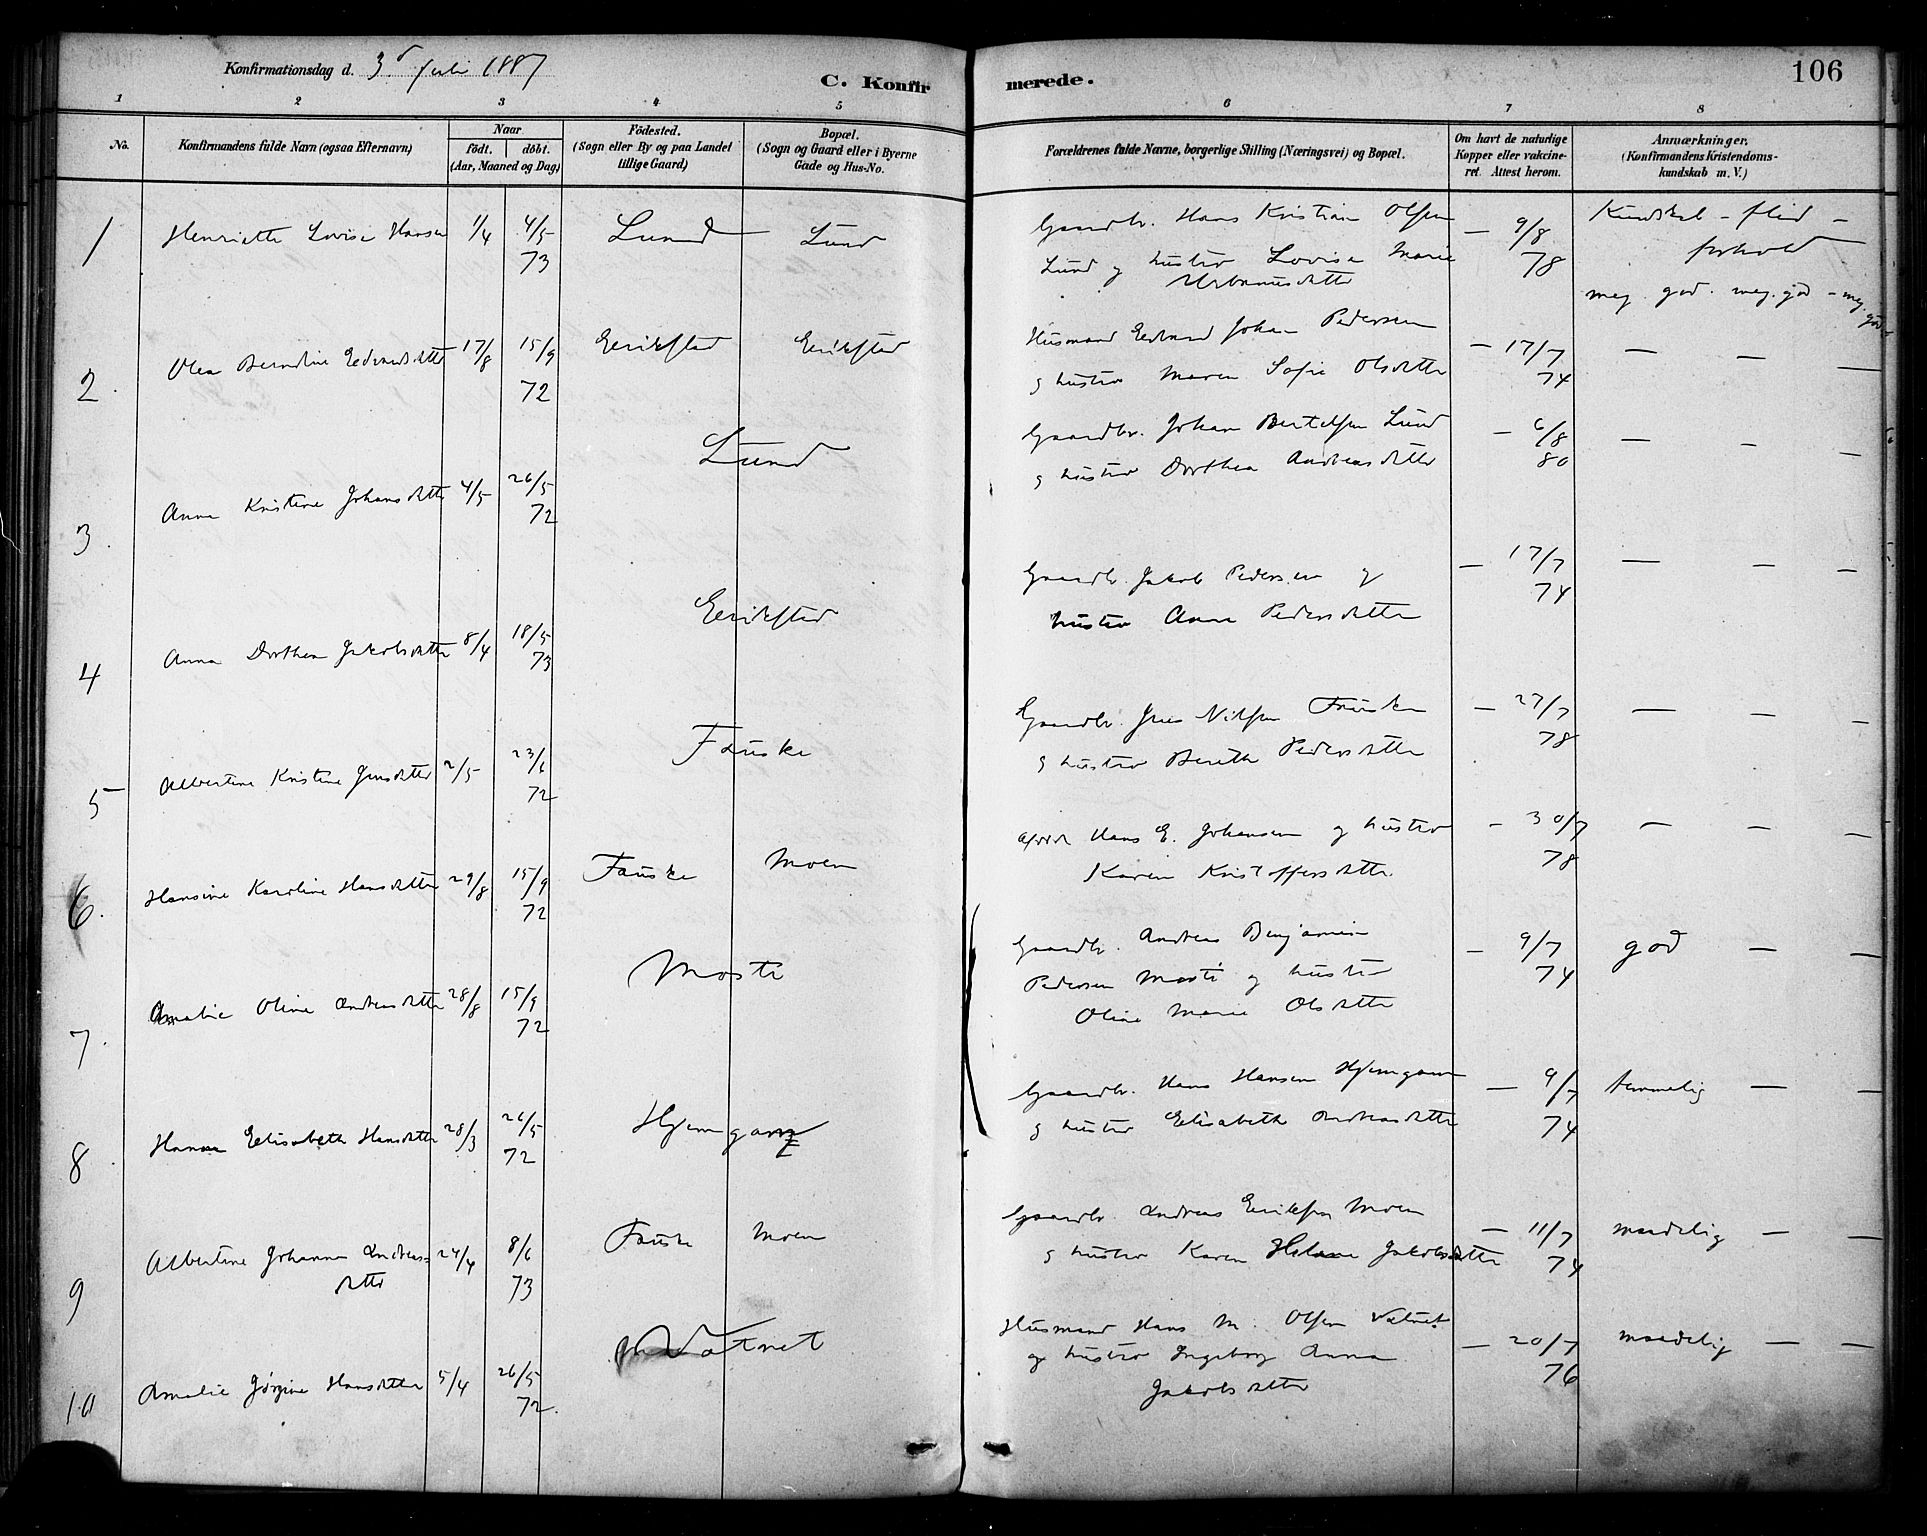 Konfirmationsdag d. 3d Juli 1887
C. Konfir merede.
106
1 2 3 4 5 6 7 8
No.
Konfirmandens fulde Navn (ogsaa Efternavn)
Naar
födt. döbt.
(Aar, Maaned og Dag)
Födested.
(Sogn eller By og paa Landet
tillige Gaard)
Bopæl.
(Sogn og Gaard eller i Byerne
Gade og Hus-No.
Forældrenes fulde Navne, borgerlige Stilling (Næringsvei) og Bopæl.
Om havt de naturlige
Kopper eller vakcine-
ret. Attest herom.
Anmærkninger.
(Konfirmandens Kristendoms-
kundskab m. V.)
1 Henriette Lovise Hansen 1/4 4/5 73 Lund Lund
Gaardbr. Hans Kristian Olsen
Lund og hustru Lovise Marie
Urbanusdatter
— 9/8 78
Kundskab – flid –
forhold
meg. god. meg. god – meg. god
2. Olea Berndtine Edvardsdatter 17/8 15/9 72 Erikstad Erikstad
Husmand Edvard Johan Pedersen
og hustru Maren Sofie Olsdatter
— 17/7 74 — — —
3. Anna Kristine Johansdatter 4/5 26/5 72 Lund
Gaardbr. Johan Bertelsen Lund
og hustru Dorthea Andreasdatter
— 6/8 80 — — —
4 Anna Dorthea Jakobsdatter 8/4 18/5 73 Erikstad
Gaardbr. Jakob Pedersen og
hustru Anne Pedersdatter
— 17/7 74 — — —
5 Albertine Kristine Jensdatter 2/5 23/6 72 Fauske
Gaardbr. Jens Nilsen Fauske
og hustru Berith Pedersdatter
— 27/7 78 — — —
6. Hansine Karoline Hansdatter 29/8 15/9 72 Fauske Moen
Hans E. Johansen og hustru
Karen Kristoffersdatter
— 30/7 78 — — —
7. Amalie Oline Andreasdatter 28/8 15/9 72 Mosti
Gaardbr. Andreas Benjamin
Pedersen Mosti og hustru
Oline Marie Olsdatter
— 9/7 74 god — —
8. Hanna Elisabeth Hansdatter 28/3 26/5 72 Hjemgam
Gaardbr. Hans Hansen Hjemgam
og hustru Elisabeth Andreasdatter
— 9/7 74 temmelig — —
9 Albertine Johanna Andreas-
datter 24/4 8/6 73 Fauske Moen
Gaardbr. Andreas Eriksen Moen
og hustru Karen Helene Jakobsdatter
— 11/7 74 maadelig — —
10 Amalie Jørgine Hansdatter 5/4 26/5 72. Vatnet
Husmand Hans M. Olsen Vatnet
og hustru Ingeborg Anna
Jakobsdatter
— 20/7 76 maadelig — —